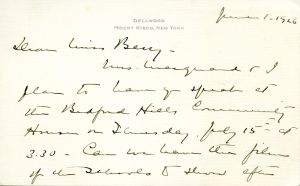 DELLWOOD
MOUNT KISCO, NEW YORK
June 1 - 1926
Dear Miss Berry -
Mrs. Marquand & I
plan to have you speak at
the Bedford Hills Community
House on Thursday July 15th at
3.30 - Can we have the films
of the Schools to show after